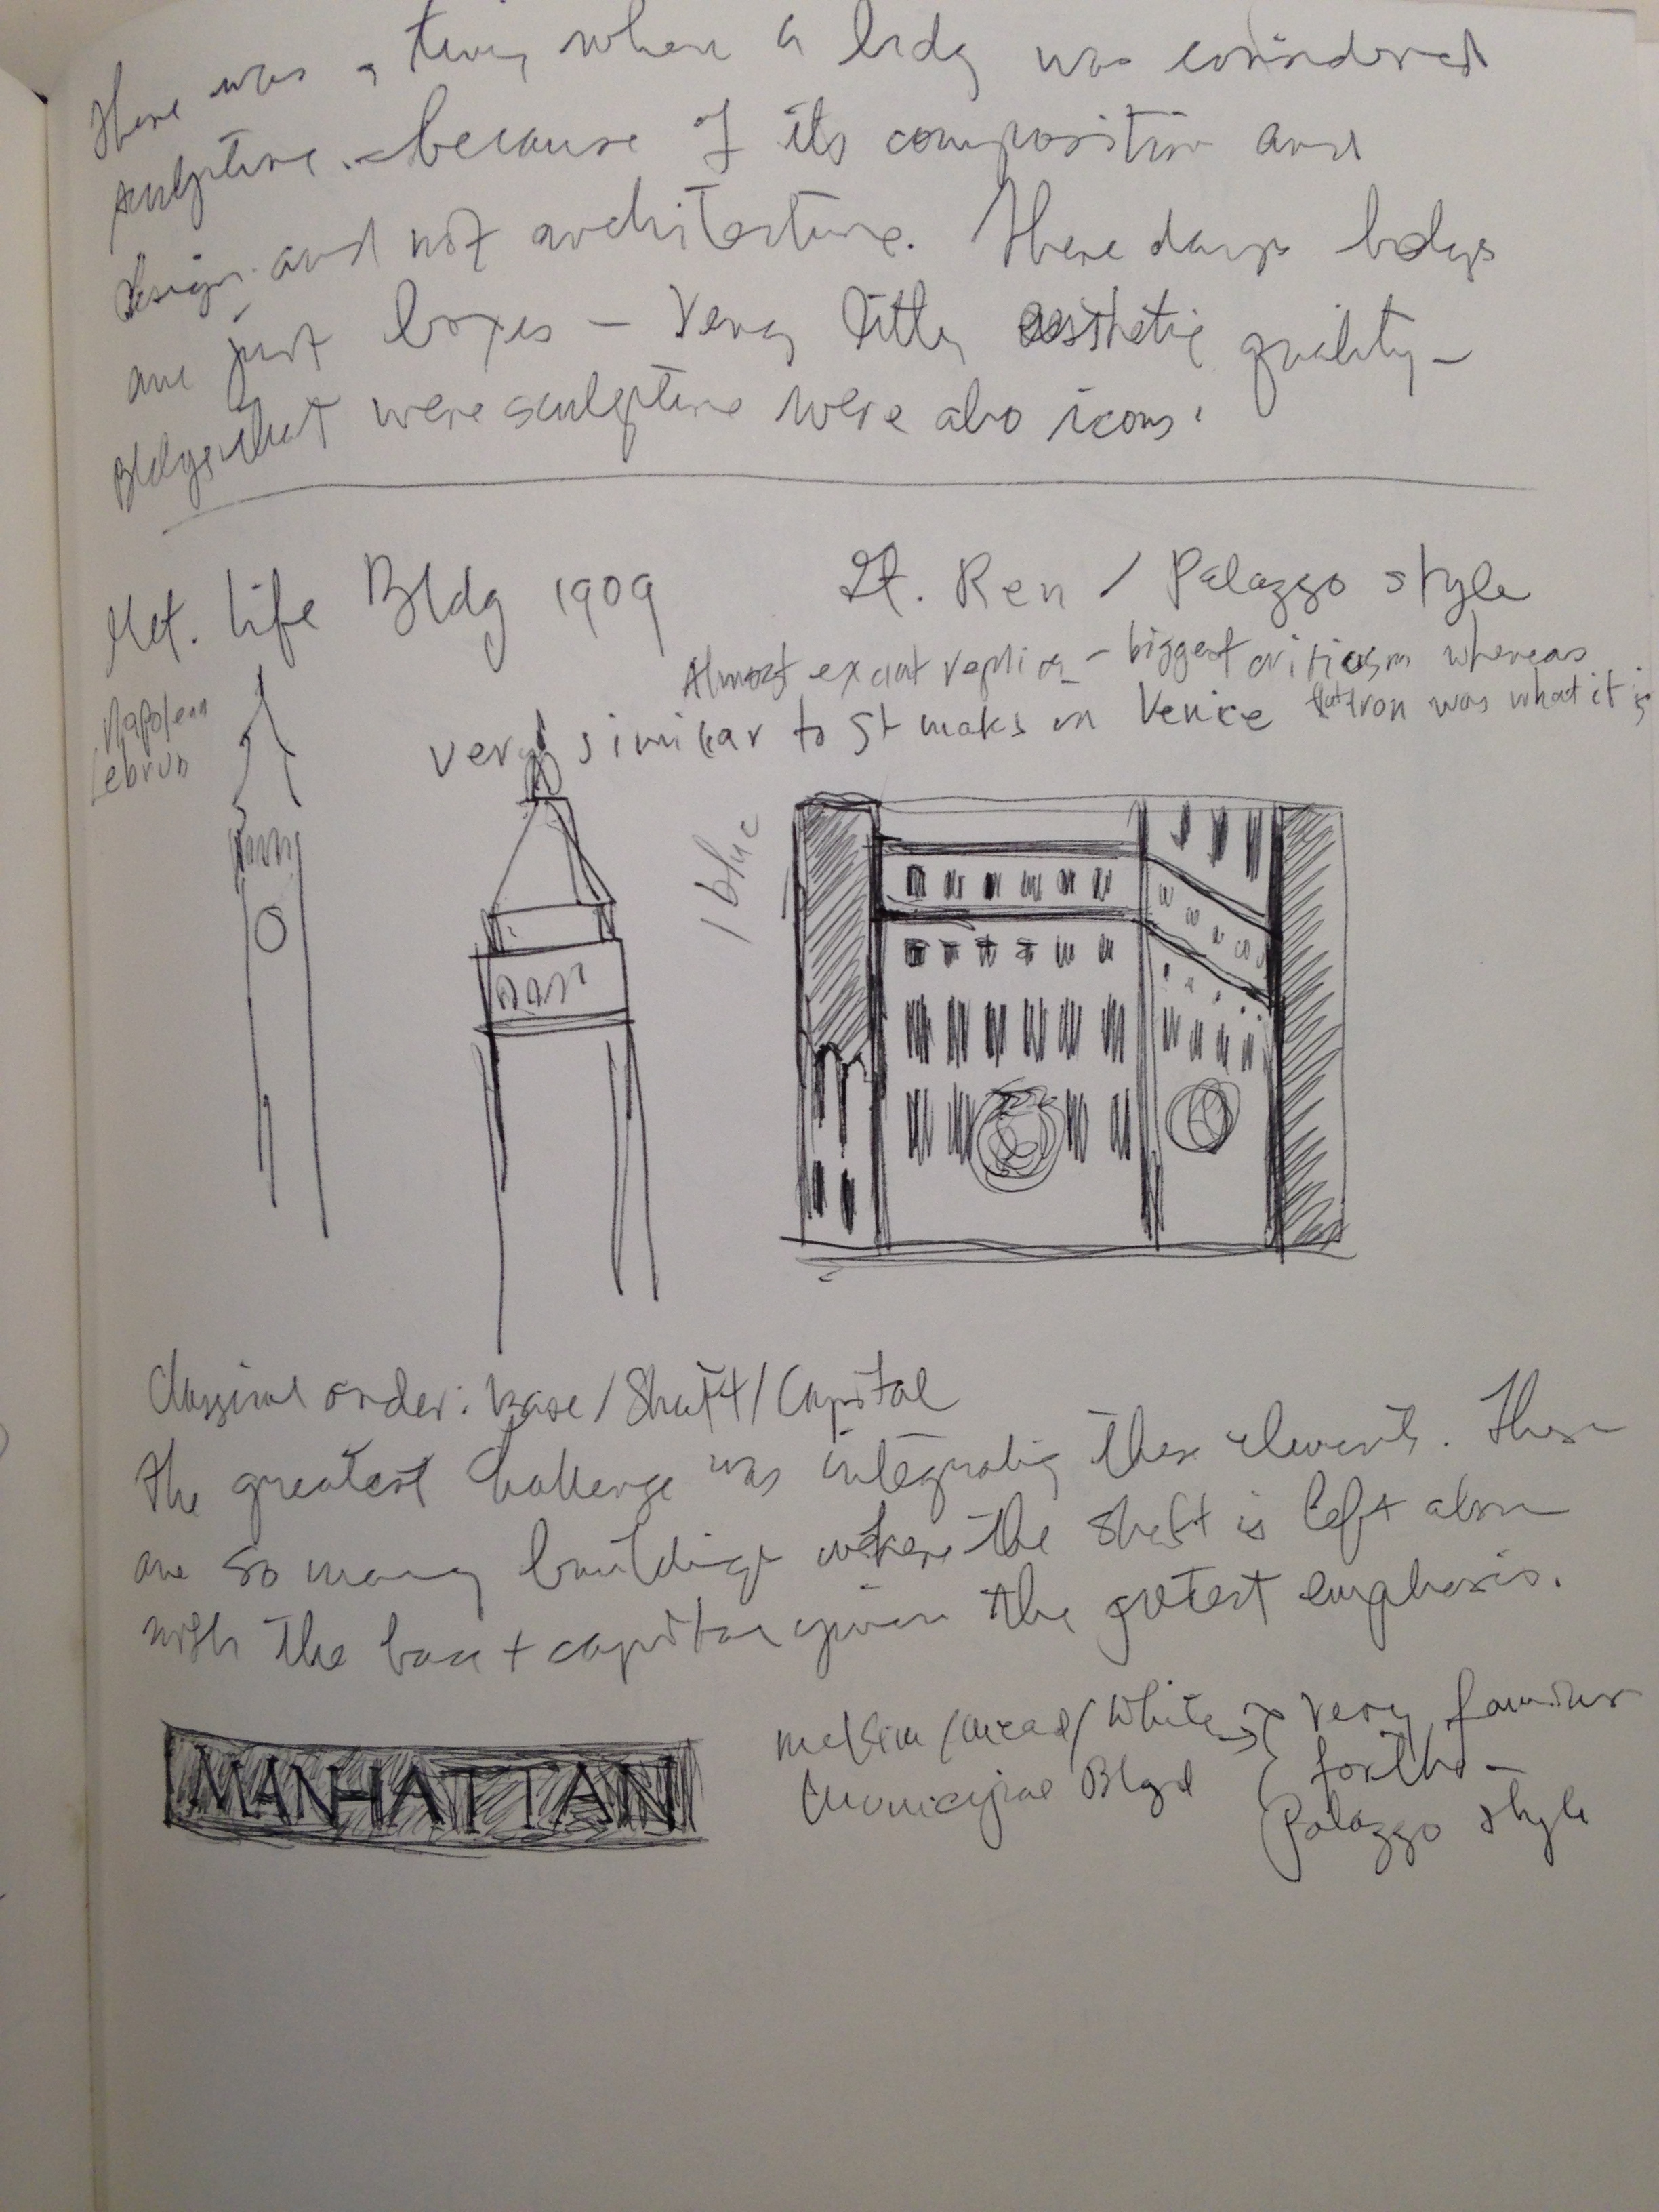 There was a time when a bldg was considered
sculpture - because of its composition and
design and not architecture. These days bldgs
are just boxes - Very little aesthetic quality -
Bldgs that were sculpture were also icons.
Met. Life Bldg 1909
It. Ren / Palazzo style
Almost exact replica - biggest criticism whereas
flatiron was what it is
Napolean
Lebrun
very similar to St maks in Venice
1 blue
Classical order: base / Shaft / Capital
The greatest challenge was integrating these elements. There
are so many buildings where the shaft is left alone
with the base + capital given the gretest emphasis.
MANHATTAN
McKim / Mead / White → very famous
Municipal Bldg
for the -
Palazzo style